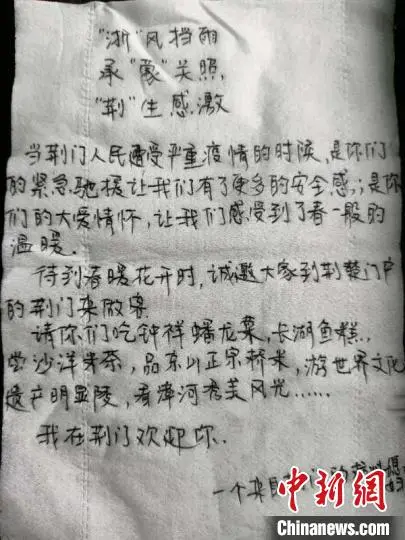 "浙"风挡雨
承"象"关照,
"荆"生感激
当荆门人民遭受严重疫情的时候,是你们
的紧急驰援让我们有了更多的安全感,;是你
们的大爱情怀,让我们感受到了春一般的
温暖.
待到春暖花开时,诚邀大家到荆楚门户
的荆门来做客
请你们吃钟祥蟠龙菜,长湖鱼糕.,
尝沙洋米茶,品京山正宗桥米,游世界文化
遗产明显陵,看漳河秀美风光……
我在荆门欢迎你.
一个来自
中新网
Chinanews.com